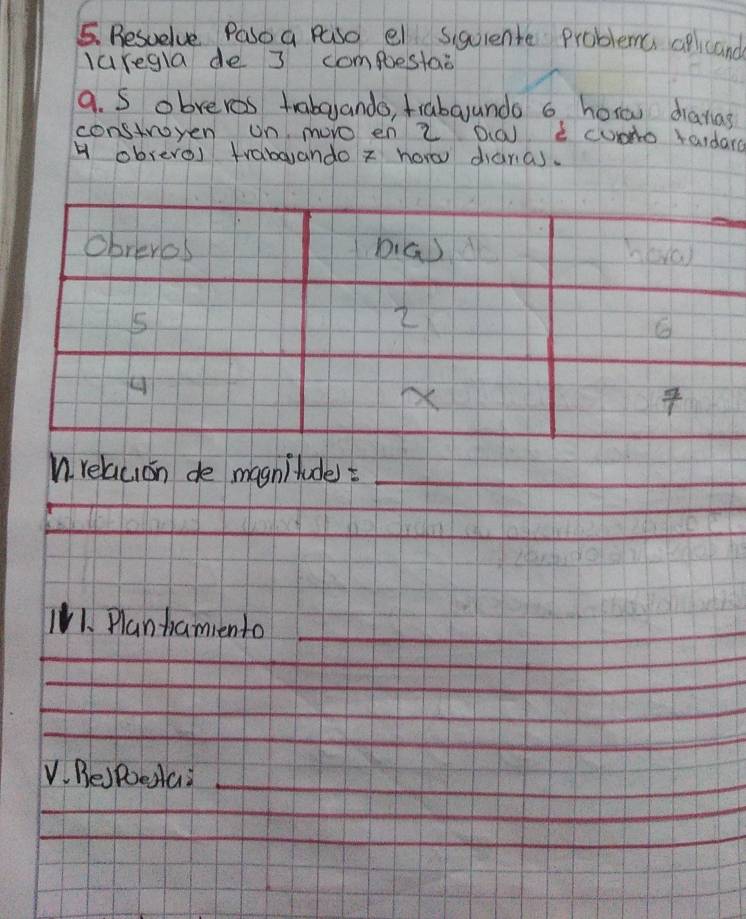 5. Resuelve Paso a Paso el siguiente Problema aplicand
la regla de 3 compoesta:
a. 5 obreros trabajando, trabajando 6 horas diarias
construyen un muro en 2 Dias ¿ cuanto tardara
4 obreros trabajando 7 horas diarias.
Obreros Dias horas
5 2 6
4 x 7
n. relación de magnitudes:
III. Plantiamiento
V. Respoesta: